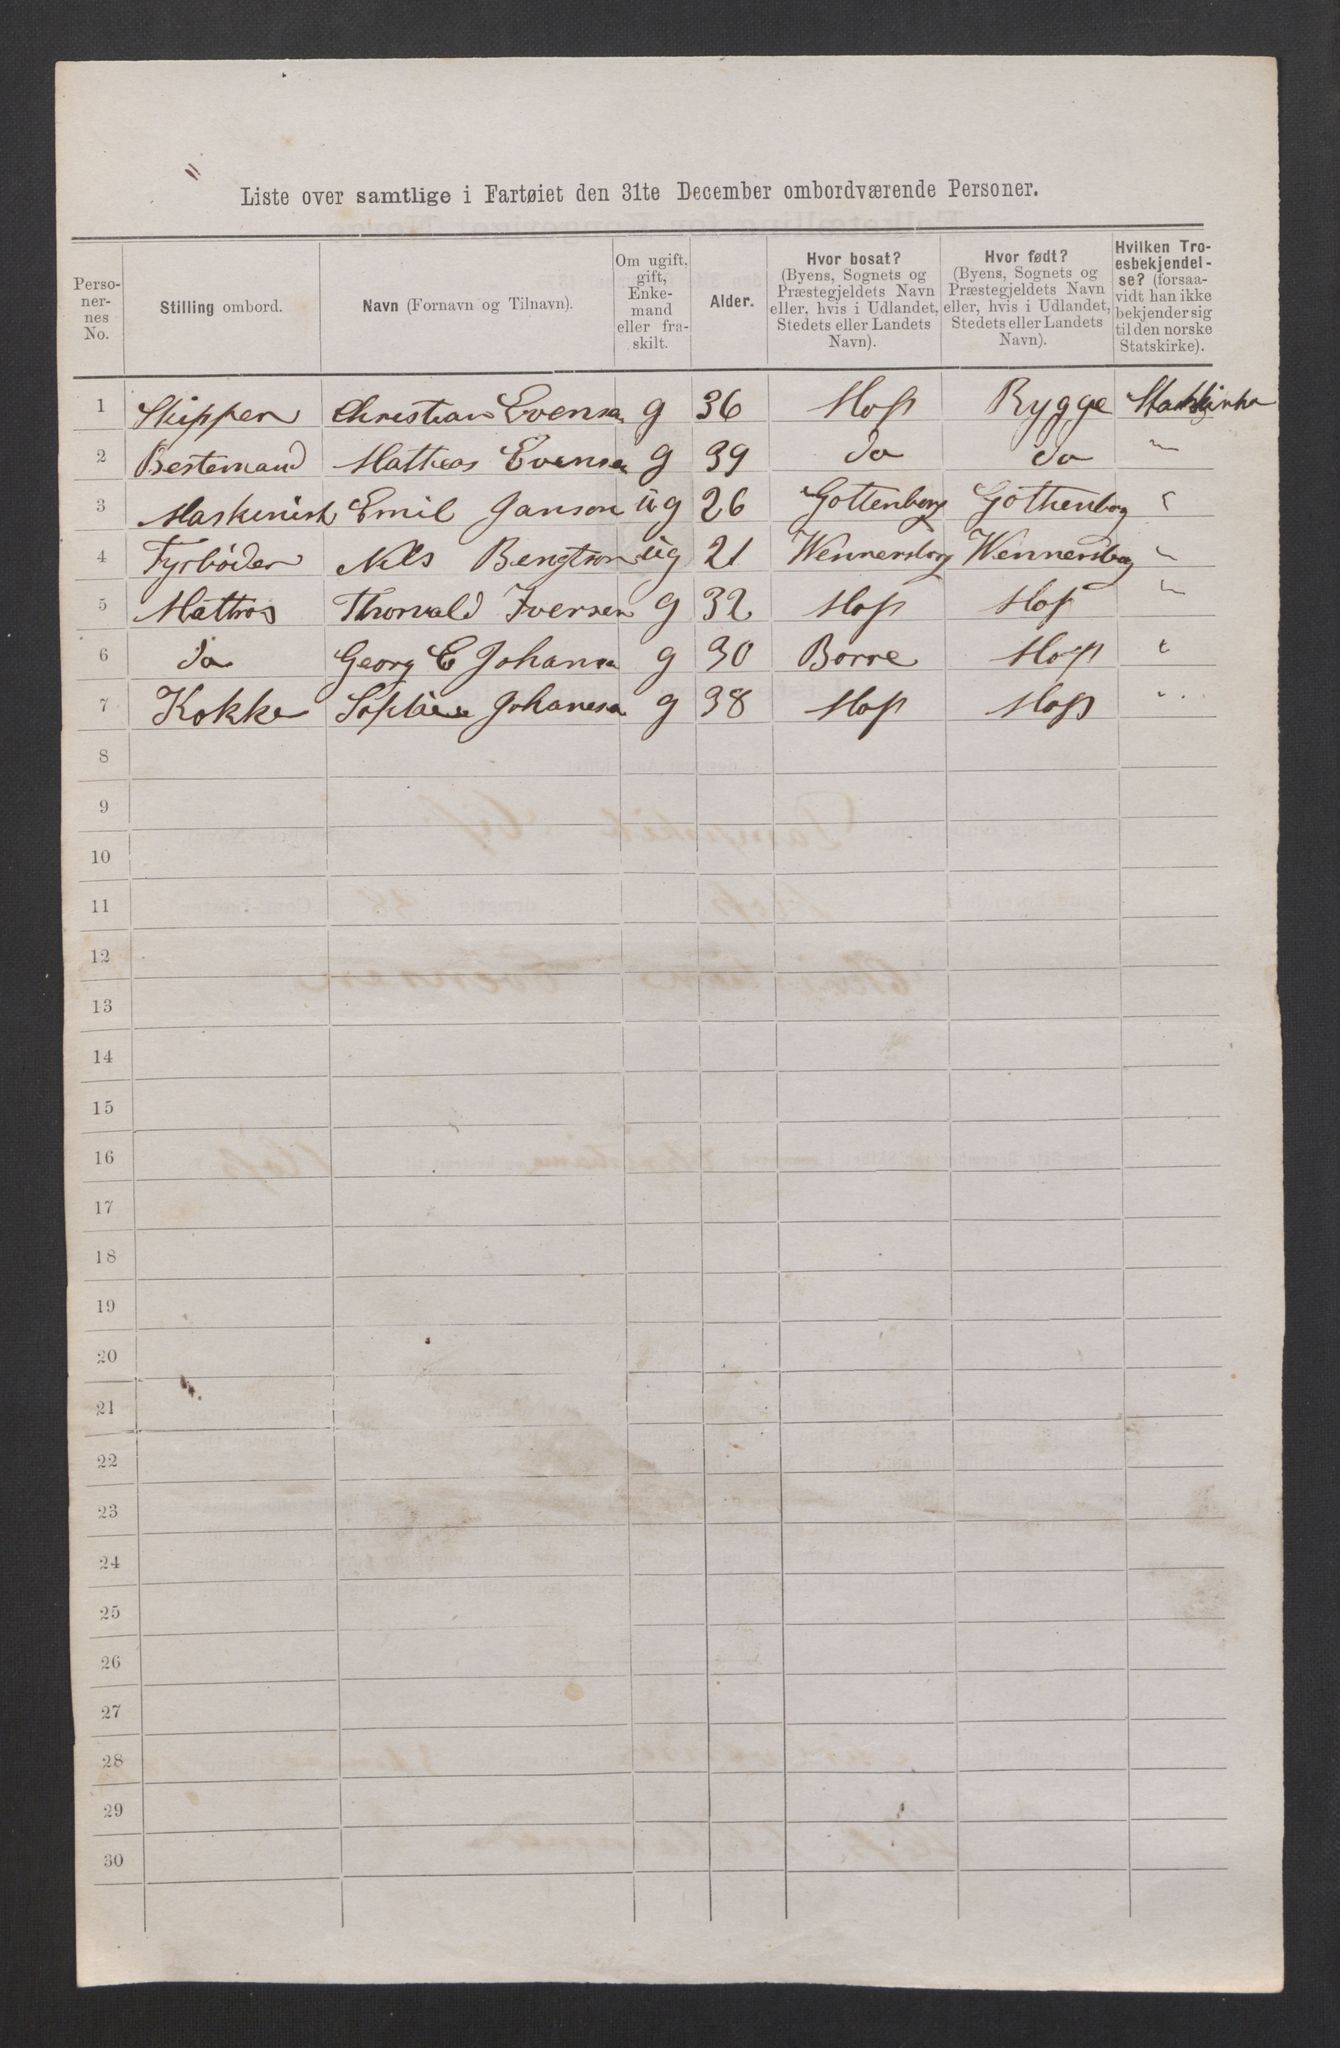 Liste over samtlige i Fartøiet den 31te December ombordværende Personer.
Personernes No. | Stilling ombord. | Navn (Fornavn og Tilnavn). | Om ugift, gift, Enkemand eller fraskilt. | Alder. | Hvor bosat? (Byens, Sognets og Præstegjeldets Navn eller, hvis i Udlandet, Stedets eller Landets Navn). | Hvor født? (Byens, Sognets og Præstegjeldets Navn eller, hvis i Udlandet, Stedets eller Landets Navn). | Hvilken Troesbekjendelse? (forsaavidt han ikke bekjender sig til den norske Statskirke).
1 Skipper Christian Evensen g 36 Moss Rygge Statskirke
2 Bestemand Mathias Evensen g 39 do do "
3 Maskinist Emil Janson ug 26 Gottenborg Gothenborg "
4 Fyrbøder Nils Bengtson ug 21 Wennersborg Wennersborg "
5 Mattros Thorvald Iversen g 32 Moss Moss "
6 do Georg E Johansen g 30 Borre Moss "
7 Kokke Johanesen g 38 Moss Moss "
8
9
10
11
12
13
14
15
16
17
18
19
20
21
22
23
24
25
26
27
28
29
30